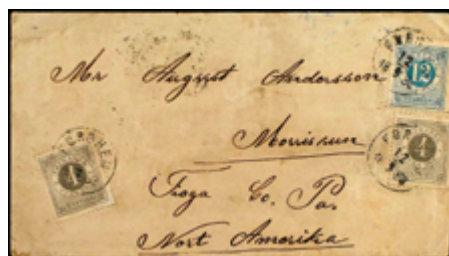 Mr August Andersson
12
Morrisrun
4
4
Tioga Co. Pa.
Nort Amerika